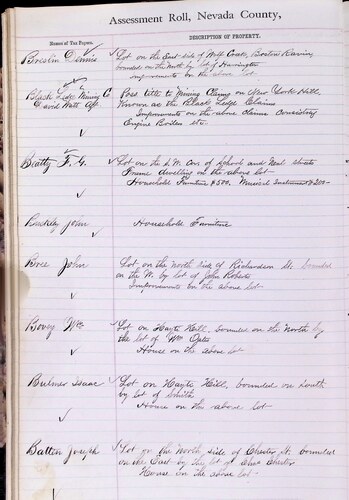 Assessment Roll, Nevada County,
Names of Tax Payers.
DESCRIPTION OF PROPERTY.
Breslin Dennis
Lot on the East side of Wolf Creek, Boston Ravine,
bounded on the North by lot of Harrington
improvements on the above lot
Black Ledge Mining Co
David Watt Agt
Poss title to Mining Claim on New York Hill,
Known as the Black Ledge Claims
Improvements on the above claims consisting
Engine Boilers etc.
Beatty F. G.
Lot on the N.W. Cor of School and Neal Streets
Frame dwelling on the above lot
Household Furniture $500, Musical Instrument $200
Buckley John
Household Furniture
Bree John
Lot on the North side of Richardson St. bounded
on the W. by lot of John Roberts
Improvements on the above lot
Bovey Wm
Lot on Hayts Hill, bounded on the North by
the lot of Wm Opie
House on the above lot
Bulmer Isaac
Lot on Hayts Hill, bounded on South
by lot of Smith
House on the above lot
Batten Joseph
Lot on the North side of Chester St. bounded
on the East by the lot of Chester
House on the above lot